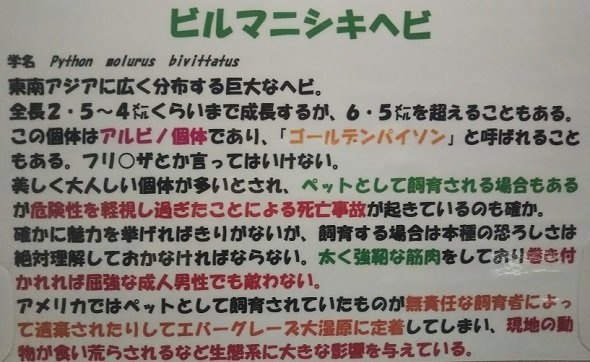 ビルマニシキヘビ
学名 Python molurus bivittatus
東南アジアに広く分布する巨大なヘビ。
全長2・5〜4㍍くらいまで成長するが、6・5㍍を超えることもある。
この個体はアルビノ個体であり、「ゴールデンパイソン」と呼ばれること
もある。フリ○ザとか言ってはいけない。
美しく大人しい個体が多いとされ、ペットとして飼育される場合もある
が危険性を軽視し過ぎたことによる死亡事故が起きているのも確か。
確かに魅力を挙げればきりがないが、飼育する場合は本種の恐ろしさは
絶対理解しておかなければならない。太く強靭な筋肉をしており巻き付
かれれば屈強な成人男性でも敵わない。
アメリカではペットとして飼育されていたものが無責任な飼育者によっ
て遺棄されたりしてエバーグレーズ大湿原に定着してしまい、現地の動
物が食い荒らされるなど生態系に大きな影響を与えている。